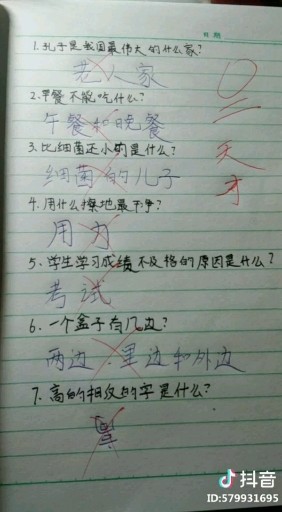 日期
1.孔子是我国最伟大的什么家?
老人家
2.早餐不能吃什么?
午餐和晚餐
3.比细菌还小的是什么?
细菌的儿子
天才
4.用什么擦地最干净?
用力
5.学生学习成绩不及格的原因是什么?
考试
6.一个盒子有几边?
两边.里边和外边
7.高的相反的字是什么?
抖音
ID:579931695